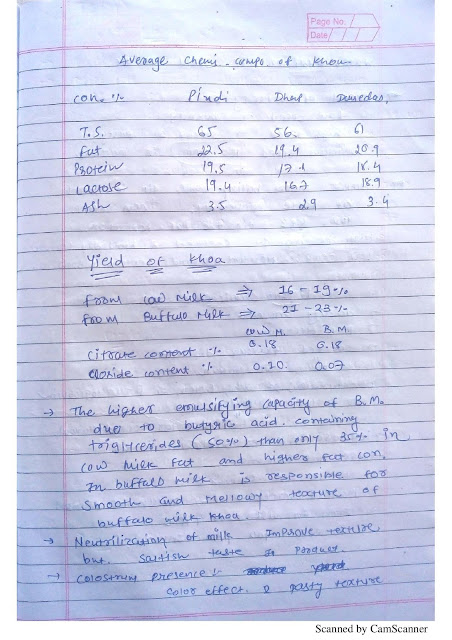 Page No.
Date
Average Chemi. compo. of Khoa
con. % Pindi Dhap Danedar.
T.S. 65 56. 61
Fat 22.5 19.4 20.9
Protein 19.5 17.1 18.4
Lactose 19.4 16.7 18.9
Ash 3.5 2.9 3.4
Yield of Khoa
from cow Milk ⇒ 16 - 19%
from Buffalo Milk ⇒ 21 - 23%
cow M. B.M.
Citrate content % 0.18 0.18
Cloride content % 0.10 0.07
→ The higher emulsifying capacity of B.M.
due to butyric acid. containing
triglycerides (50%) than only 35% in
cow Milk fat and higher fat con,
In buffalo milk is responsible for
Smooth and Mellowy texture of
buffalo milk khoa.
→ Neutrilization of milk Improve texture,
but. saltish taste in Product.
→ Colostrum presence :-
Color effect. & pasty texture
Scanned by CamScanner